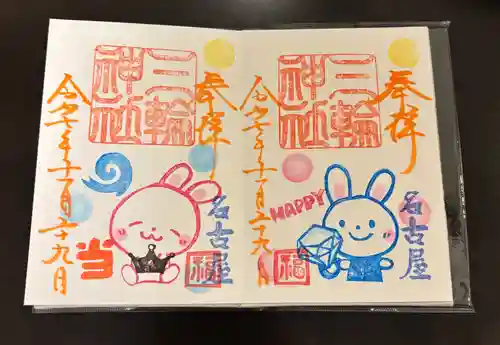 奉拝
三輪
神社
名古屋
福
令和六年十一月二十九日
当
奉拝
三輪
神社
名古屋
福
令和六年十一月二十九日
HAPPY